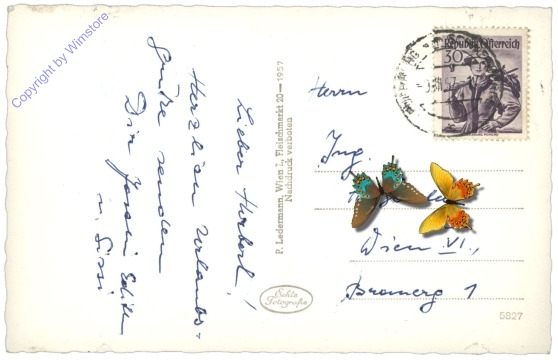 Copyright by Wimstore
Lieber Herbert!
Herzlichen Urlaubs-
Grüße senden
Dir
u. Sissi
P. Ledermann, Wien I., Fleischmarkt 20 — 1957
Nachdruck verboten
Echte
Fotografie
Republik Österreich
30
Herrn
Ing.
Wien VI.,
1
5827